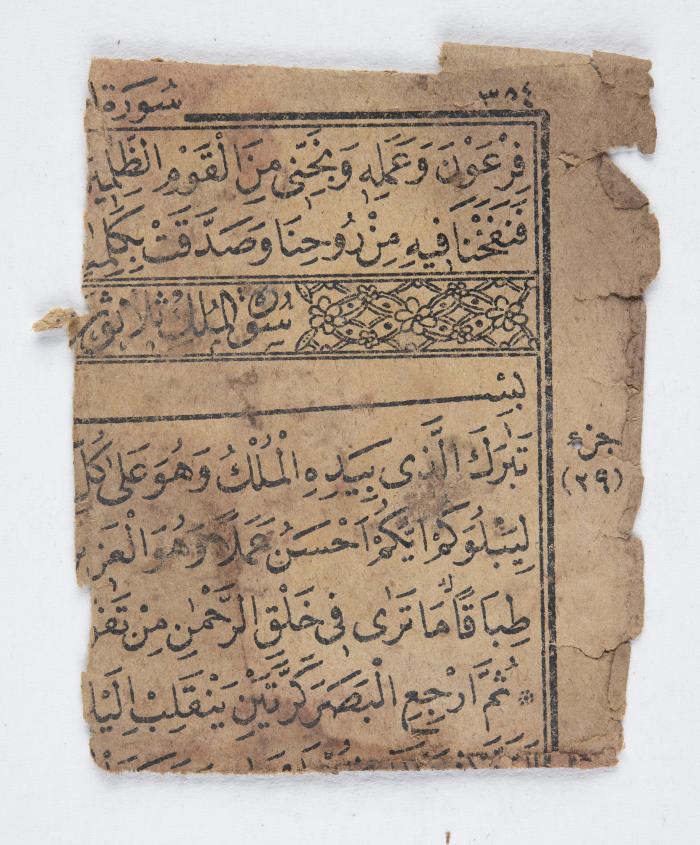 ٣٥٤ سُورَةُ
فِرْعَوْنَ وَعَمَلِهٖ وَنَجِّنٖى مِنَ الْقَوْمِ الظّٰلِمٖينَ
فَنَفَخْنَا فٖيهِ مِنْ رُوحِنَا وَصَدَّقَتْ
سُورَةُ الْمُلْكِ ثَلَاثُونَ
بِسْــ
تَبٰرَكَ الَّذٖى بِيَدِهِ الْمُلْكُ وَهُوَ عَلٰى كُلِّ
جزء
(٢٩)
لِيَبْلُوَكُمْ اَيُّكُمْ اَحْسَنُ عَمَلًا وَهُوَ الْعَزٖيزُ
طِبَاقًا مَا تَرٰى فٖى خَلْقِ الرَّحْمٰنِ مِنْ
* ثُمَّ ارْجِعِ الْبَصَرَ كَرَّتَيْنِ يَنْقَلِبْ اِلَيْكَ